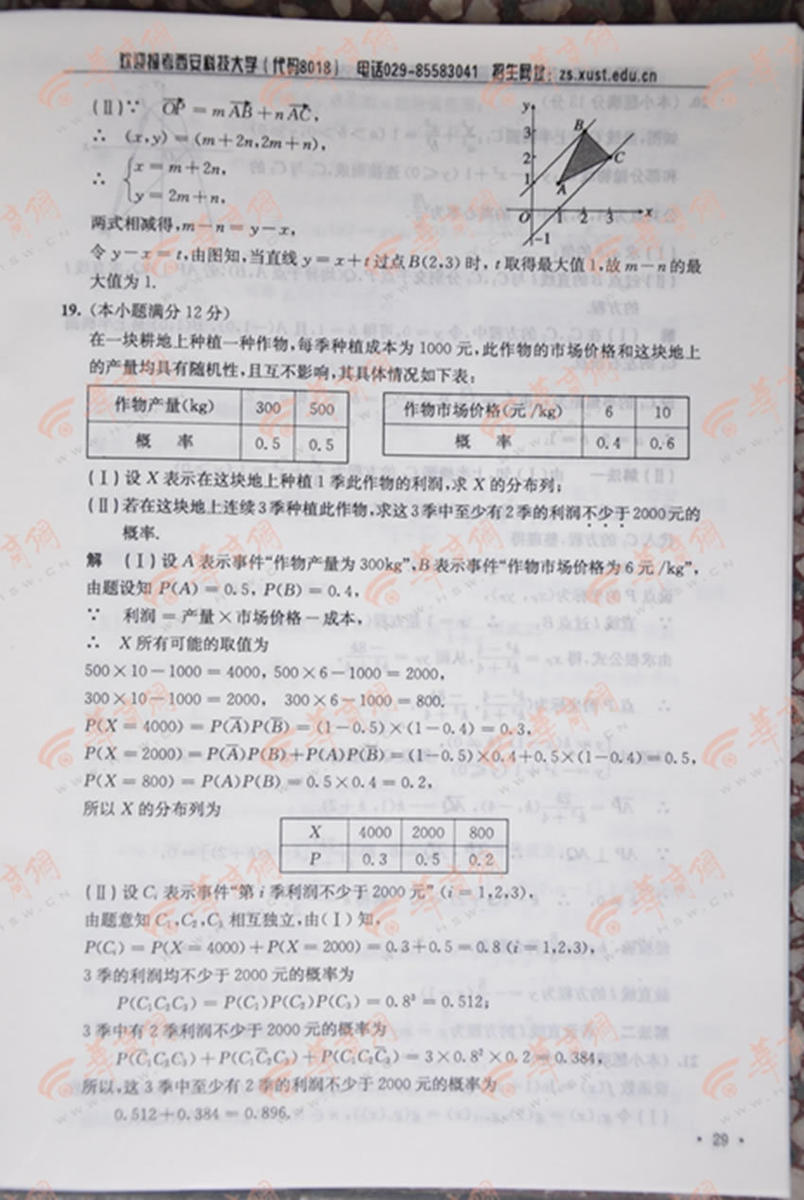 欢迎报考西安科技大学(代码8018) 电话029-85583041 招生网址:zs.xust.edu.cn
(Ⅱ)∵ OP = mAB + nAC,
∴ (x,y) = (m+2n,2m+n),
∴ {x = m+2n,
y = 2m+n,
两式相减得,m-n = y-x,
令 y-x = t,由图知,当直线 y = x+t 过点 B(2,3) 时,t 取得最大值 1,故 m-n 的最
大值为 1.
y
3
2
1
B
C
A
O
1 2 3 x
-1
19. (本小题满分 12 分)
在一块耕地上种植一种作物,每季种植成本为 1000 元,此作物的市场价格和这块地上
的产量均具有随机性,且互不影响,其具体情况如下表:
作物产量(kg) 300 500
概 率 0.5 0.5
作物市场价格(元/kg) 6 10
概 率 0.4 0.6
(Ⅰ) 设 X 表示在这块地上种植 1 季此作物的利润,求 X 的分布列;
(Ⅱ) 若在这块地上连续 3 季种植此作物,求这 3 季中至少有 2 季的利润不少于 2000 元的
概率.
解 (Ⅰ) 设 A 表示事件“作物产量为 300kg”,B 表示事件“作物市场价格为 6 元/kg”,
由题设知 P(A) = 0.5, P(B) = 0.4,
∵ 利润 = 产量×市场价格-成本,
∴ X 所有可能的取值为
500×10-1000 = 4000, 500×6-1000 = 2000,
300×10-1000 = 2000, 300×6-1000 = 800.
P(X = 4000) = P(A̅)P(B̅) = (1-0.5)×(1-0.4) = 0.3,
P(X = 2000) = P(A̅)P(B)+P(A)P(B̅) = (1-0.5)×0.4+0.5×(1-0.4) = 0.5,
P(X = 800) = P(A)P(B) = 0.5×0.4 = 0.2,
所以 X 的分布列为
X 4000 2000 800
P 0.3 0.5 0.2
(Ⅱ) 设 Cᵢ 表示事件“第 i 季利润不少于 2000 元” (i = 1,2,3),
由题意知 C₁,C₂,C₃ 相互独立,由(Ⅰ)知,
P(Cᵢ) = P(X = 4000)+P(X = 2000) = 0.3+0.5 = 0.8 (i = 1,2,3),
3 季的利润均不少于 2000 元的概率为
P(C₁C₂C₃) = P(C₁)P(C₂)P(C₃) = 0.8³ = 0.512;
3 季中有 2 季利润不少于 2000 元的概率为
P(C̅₁C₂C₃)+P(C₁C̅₂C₃)+P(C₁C₂C̅₃) = 3×0.8²×0.2 = 0.384,
所以,这 3 季中至少有 2 季的利润不少于 2000 元的概率为
0.512+0.384 = 0.896.
· 29 ·